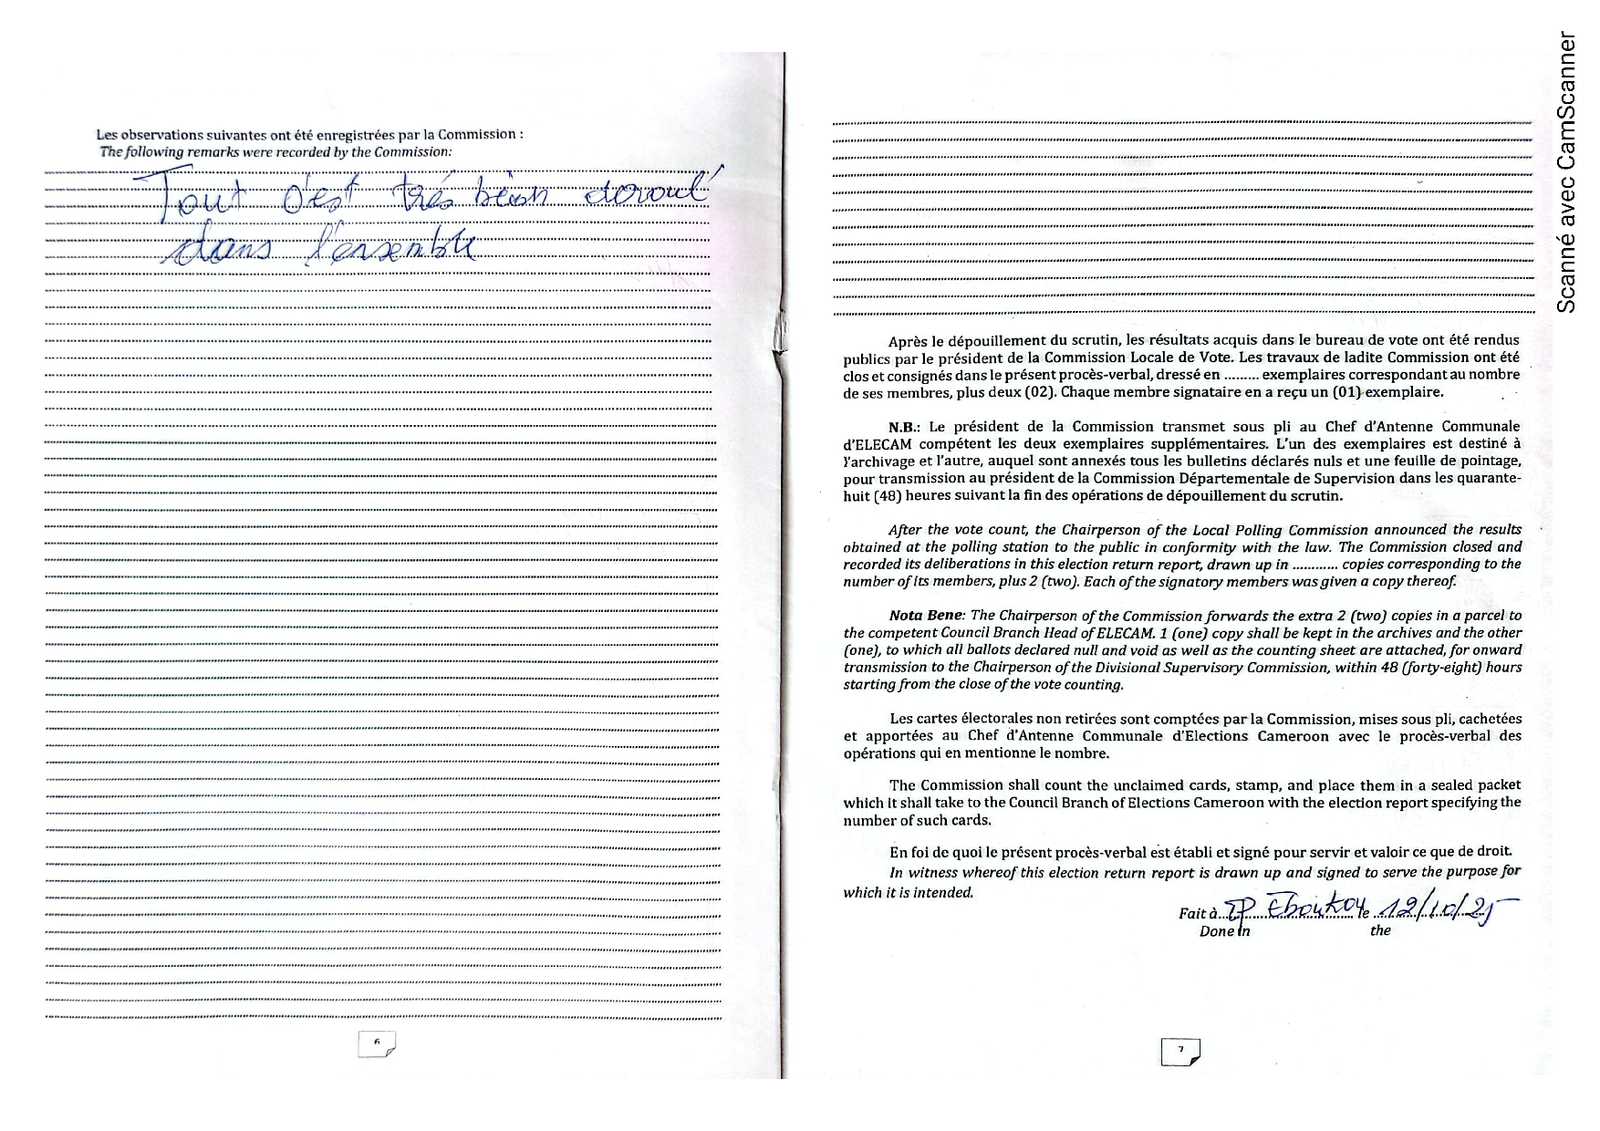 Les observations suivantes ont été enregistrées par la Commission :
The following remarks were recorded by the Commission:
Tout s'est trés bien deroulé
dans l'ensemble
6
Après le dépouillement du scrutin, les résultats acquis dans le bureau de vote ont été rendus
publics par le président de la Commission Locale de Vote. Les travaux de ladite Commission ont été
clos et consignés dans le présent procès-verbal, dressé en ......... exemplaires correspondant au nombre
de ses membres, plus deux (02). Chaque membre signataire en a reçu un (01) exemplaire.
N.B.: Le président de la Commission transmet sous pli au Chef d'Antenne Communale
d'ELECAM compétent les deux exemplaires supplémentaires. L'un des exemplaires est destiné à
l'archivage et l'autre, auquel sont annexés tous les bulletins déclarés nuls et une feuille de pointage,
pour transmission au président de la Commission Départementale de Supervision dans les quarante-
huit (48) heures suivant la fin des opérations de dépouillement du scrutin.
After the vote count, the Chairperson of the Local Polling Commission announced the results
obtained at the polling station to the public in conformity with the law. The Commission closed and
recorded its deliberations in this election return report, drawn up in ............ copies corresponding to the
number of its members, plus 2 (two). Each of the signatory members was given a copy thereof.
Nota Bene: The Chairperson of the Commission forwards the extra 2 (two) copies in a parcel to
the competent Council Branch Head of ELECAM. 1 (one) copy shall be kept in the archives and the other
(one), to which all ballots declared null and void as well as the counting sheet are attached, for onward
transmission to the Chairperson of the Divisional Supervisory Commission, within 48 (forty-eight) hours
starting from the close of the vote counting.
Les cartes électorales non retirées sont comptées par la Commission, mises sous pli, cachetées
et apportées au Chef d'Antenne Communale d'Elections Cameroon avec le procès-verbal des
opérations qui en mentionne le nombre.
The Commission shall count the unclaimed cards, stamp, and place them in a sealed packet
which it shall take to the Council Branch of Elections Cameroon with the election report specifying the
number of such cards.
En foi de quoi le présent procès-verbal est établi et signé pour servir et valoir ce que de droit.
In witness whereof this election return report is drawn up and signed to serve the purpose for
which it is intended.
Fait à EP Eboukou le 12/10/25
Done in the
7
Scanné avec CamScanner